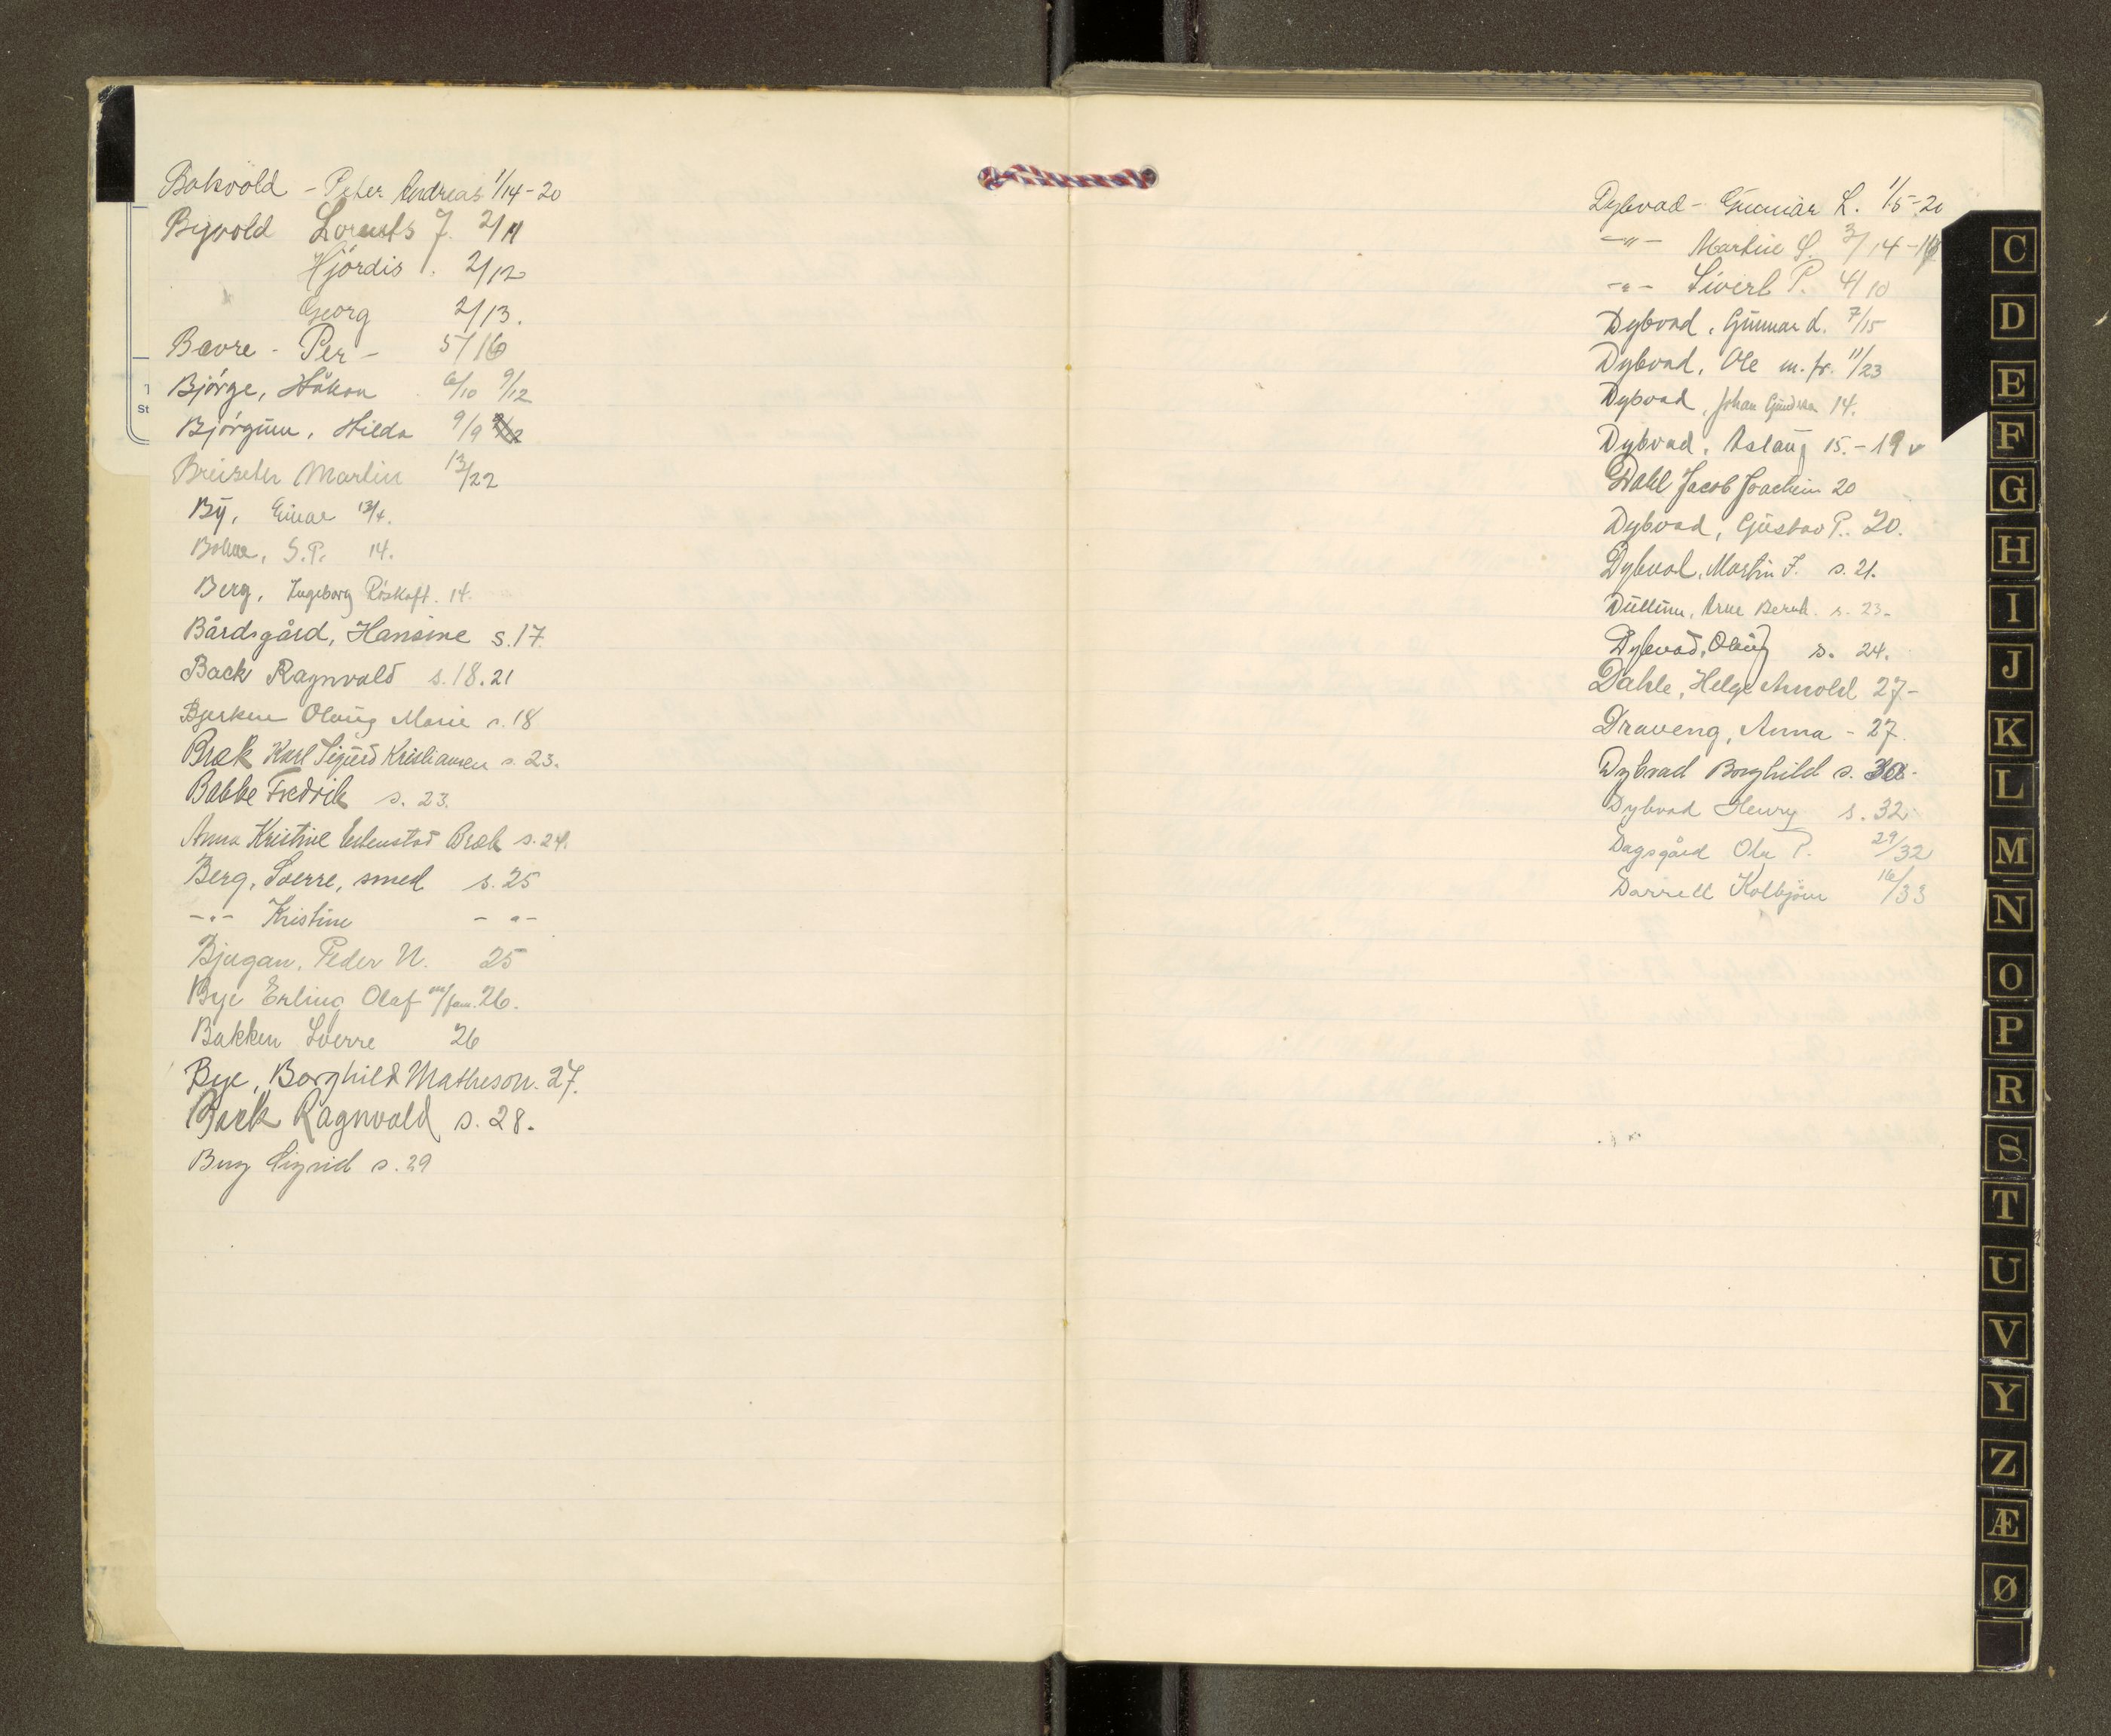 Bakvold - Peter Andreas 1/14-20
Bygvold Lorents J. 2/11
Hjördis . 2/12
Georg 2/13.
Bavre - Per - 5/16
Björge, Håkon 6/10 9/12
Björgum, Hilda 9/9
Martin 13/22
By, Einar 13/4.
S.P. 14.
Berg, Ingeborg Röskaft. 14.
Bårdsgård, Hansine s.17.
Back Ragnvald s.18.21
Bjerken Olaug Marie s.18
Bræk Karl Sigurd Kristiansen s.23.
Babbe Fredrik s. 23.
Anna Kristine Bræk s.24.
Berg, Sverre, smed s. 25
-"- Kristine - " -
Bjugan, Peder N. 25
Bye Erling Olaf m/fam. 26.
Bakken Sverre 26
Bye, Borghild Matheson. 27.
Back Ragnvald s. 28.
Sigrid s. 29
St
Dybvad - Gunnar L. 1/5-20
-"- Martin S. 3/14-16
-"- Sivert P. 4/10
Dybvad, Gunnar L. 7/15
Dybvad, Ole m. fr. 11/23
Dybvad, Johan 14.
Dybvad, Aslaug 15.-19 v
Dahl Jacob Joachim 20
Dybvad, Gustav P. 20.
Dybvad, Martin J. s. 21.
Arne Bernh. s. 23-
Dybvad, Olaug s. 24.
Dahle, Helge Arnold 27-
Draveng, Anna - 27.
Dybvad Borghild s. 30-
Dybvad Henry s. 32
Dagsgård Ole P. 29/32
Darrell Kolbjörn 16/33
C
D
E
F
G
H
I
J
K
L
M
N
O
P
R
S
T
U
V
Y
Z
Æ
Ø